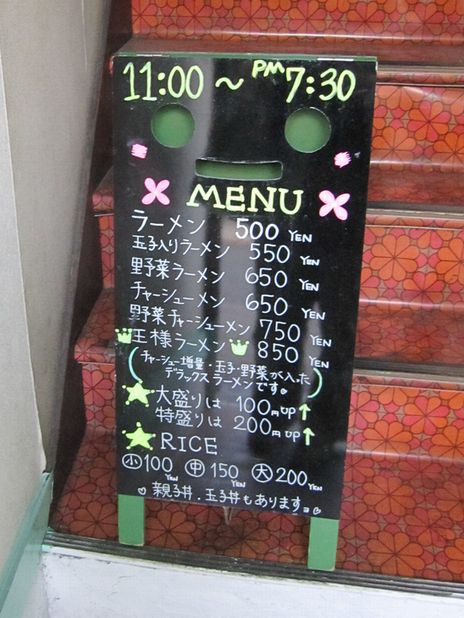 11:00 ~ PM 7:30
MENU
ラーメン 500 YEN
玉子入りラーメン 550 YEN
野菜ラーメン 650 YEN
チャーシューメン 650 YEN
野菜チャーシューメン 750 YEN
王様ラーメン 850 YEN
(チャーシュー増量・玉子・野菜が入った
デラックスラーメンです。)
大盛りは 100円UP↑
特盛りは 200円UP↑
RICE
小100YEN 中150YEN 大200YEN
親子丼.玉子丼もあります。